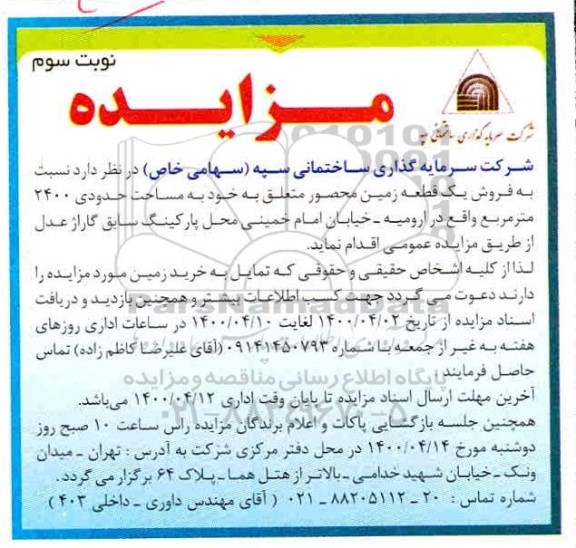 نوبت سوم
مـزایـده
شرکت سرمایه گذاری ساختمانی سپه
شـرکت سـرمایه گذاری سـاختمانی سـپه (سـهامی خاص) در نظر دارد نسبت
به فـروش یک قطعه زمین محصور متعلق به خود به مساحت حدودی ۲۴۰۰
مترمربع واقع در ارومیه ـ خیابان امام خمینی محل پارکینگ سابق گاراژ عدل
از طریق مزایده عمومی اقدام نماید.
لـذا از کلیـه اشخاص حقیقی و حقوقی کـه تمایل به خریـد زمین مـورد مزایـده را
دارنـد دعوت می گـردد جهـت کسب اطلاعات بیشتـر و همچنین بازدید و دریافت
اسـناد مزایده از تاریخ ۱۴۰۰/۰۴/۰۲ لغایت ۱۴۰۰/۰۴/۱۰ در ساعات اداری روزهای
هفته به غیـر از جمعه بـا شـماره ۰۹۱۴۱۴۵۰۷۹۳ (آقای علیرضا کاظم زاده) تماس
حاصل فرمایند.
آخرین مهلت ارسال اسناد مزایده تا پایان وقت اداری ۱۴۰۰/۰۴/۱۲ می‌باشد.
همچنین جلسه بازگشایی پاکات و اعلام برندگان مزایده راس ساعت ۱۰ صبح روز
دوشنبه مورخ ۱۴۰۰/۰۴/۱۴ در محل دفتر مرکزی شرکت به آدرس : تهران ـ میدان
ونک ـ خیابـان شـهید خدامـی ـ بـالاتر از هتـل همـا ـ پـلاک ۶۴ برگزار می گردد.
شماره تماس : ۲۰ ـ ۸۸۲۰۵۱۱۲ ـ ۰۲۱ ( آقای مهندس داوری ـ داخلی ۴۰۳ )
ParsNamadData
پایگاه اطلاع رسانی مناقصه و مزایده
۰۲۱-۸۸۳۴۹۶۷۰-۵